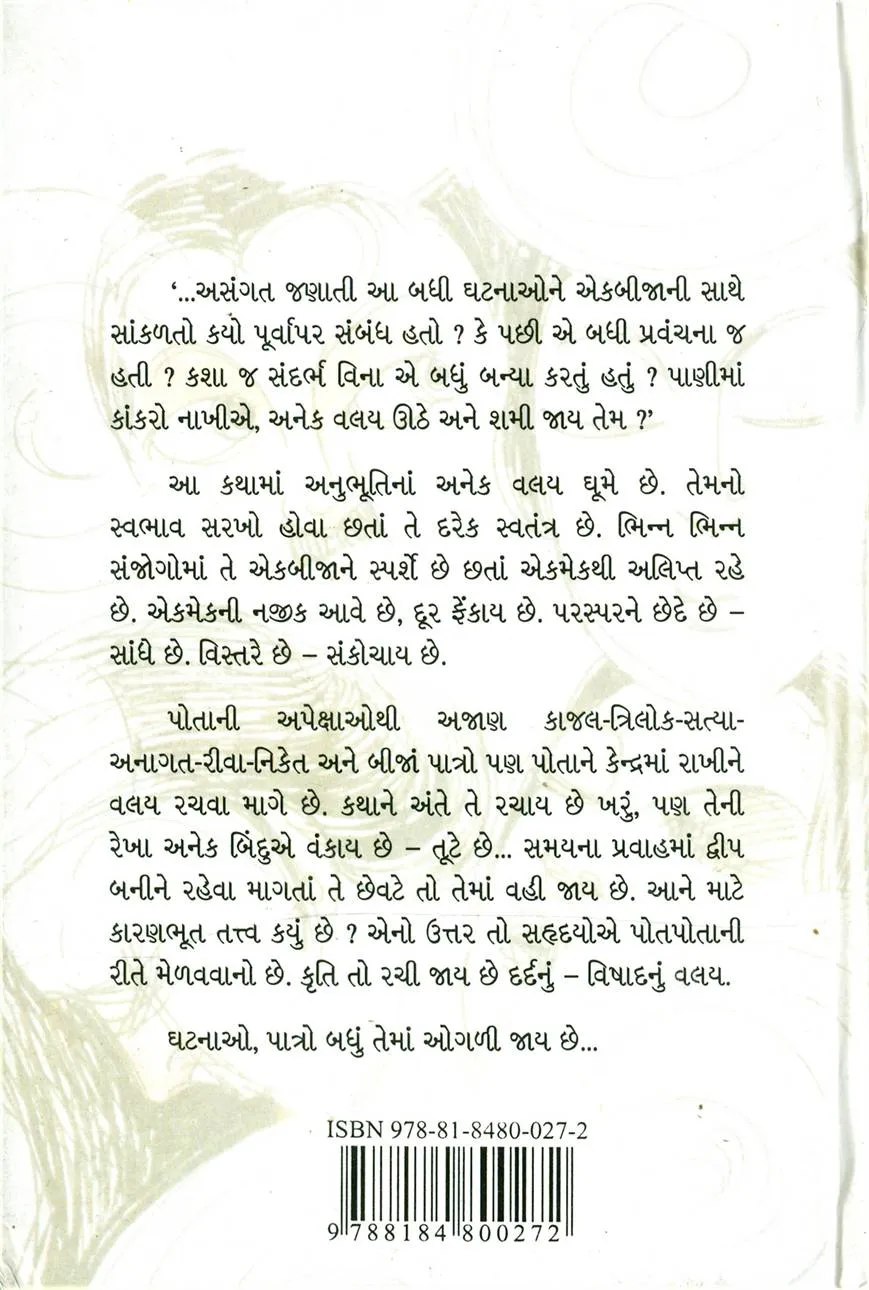 ‘...અસંગત જણાતી આ બધી ઘટનાઓને એકબીજાની સાથે
સાંકળતો કયો પૂર્વાપર સંબંધ હતો ? કે પછી એ બધી પ્રવંચના જ
હતી ? કશા જ સંદર્ભ વિના એ બધું બન્યા કરતું હતું ? પાણીમાં
કાંકરો નાખીએ, અનેક વલય ઊઠે અને શમી જાય તેમ ?’
આ કથામાં અનુભૂતિનાં અનેક વલય ઘૂમે છે. તેમનો
સ્વભાવ સરખો હોવા છતાં તે દરેક સ્વતંત્ર છે. ભિન્ન ભિન્ન
સંજોગોમાં તે એકબીજાને સ્પર્શે છે છતાં એકમેકથી અલિપ્ત રહે
છે. એકમેકની નજીક આવે છે, દૂર ફેંકાય છે. પરસ્પરને છેદે છે –
સાંધે છે. વિસ્તરે છે – સંકોચાય છે.
પોતાની અપેક્ષાઓથી અજાણ કાજલ-ત્રિલોક-સત્યા-
અનાગત-રીવા-નિકેત અને બીજાં પાત્રો પણ પોતાને કેન્દ્રમાં રાખીને
વલય રચવા માગે છે. કથાને અંતે તે રચાય છે ખરું, પણ તેની
રેખા અનેક બિંદુએ વંકાય છે – તૂટે છે... સમયના પ્રવાહમાં દ્વીપ
બનીને રહેવા માગતાં તે છેવટે તો તેમાં વહી જાય છે. આને માટે
કારણભૂત તત્ત્વ કયું છે ? એનો ઉત્તર તો સહૃદયોએ પોતપોતાની
રીતે મેળવવાનો છે. કૃતિ તો રચી જાય છે દર્દનું – વિષાદનું વલય.
ઘટનાઓ, પાત્રો બધું તેમાં ઓગળી જાય છે...
ISBN 978-81-8480-027-2
9 788184 800272